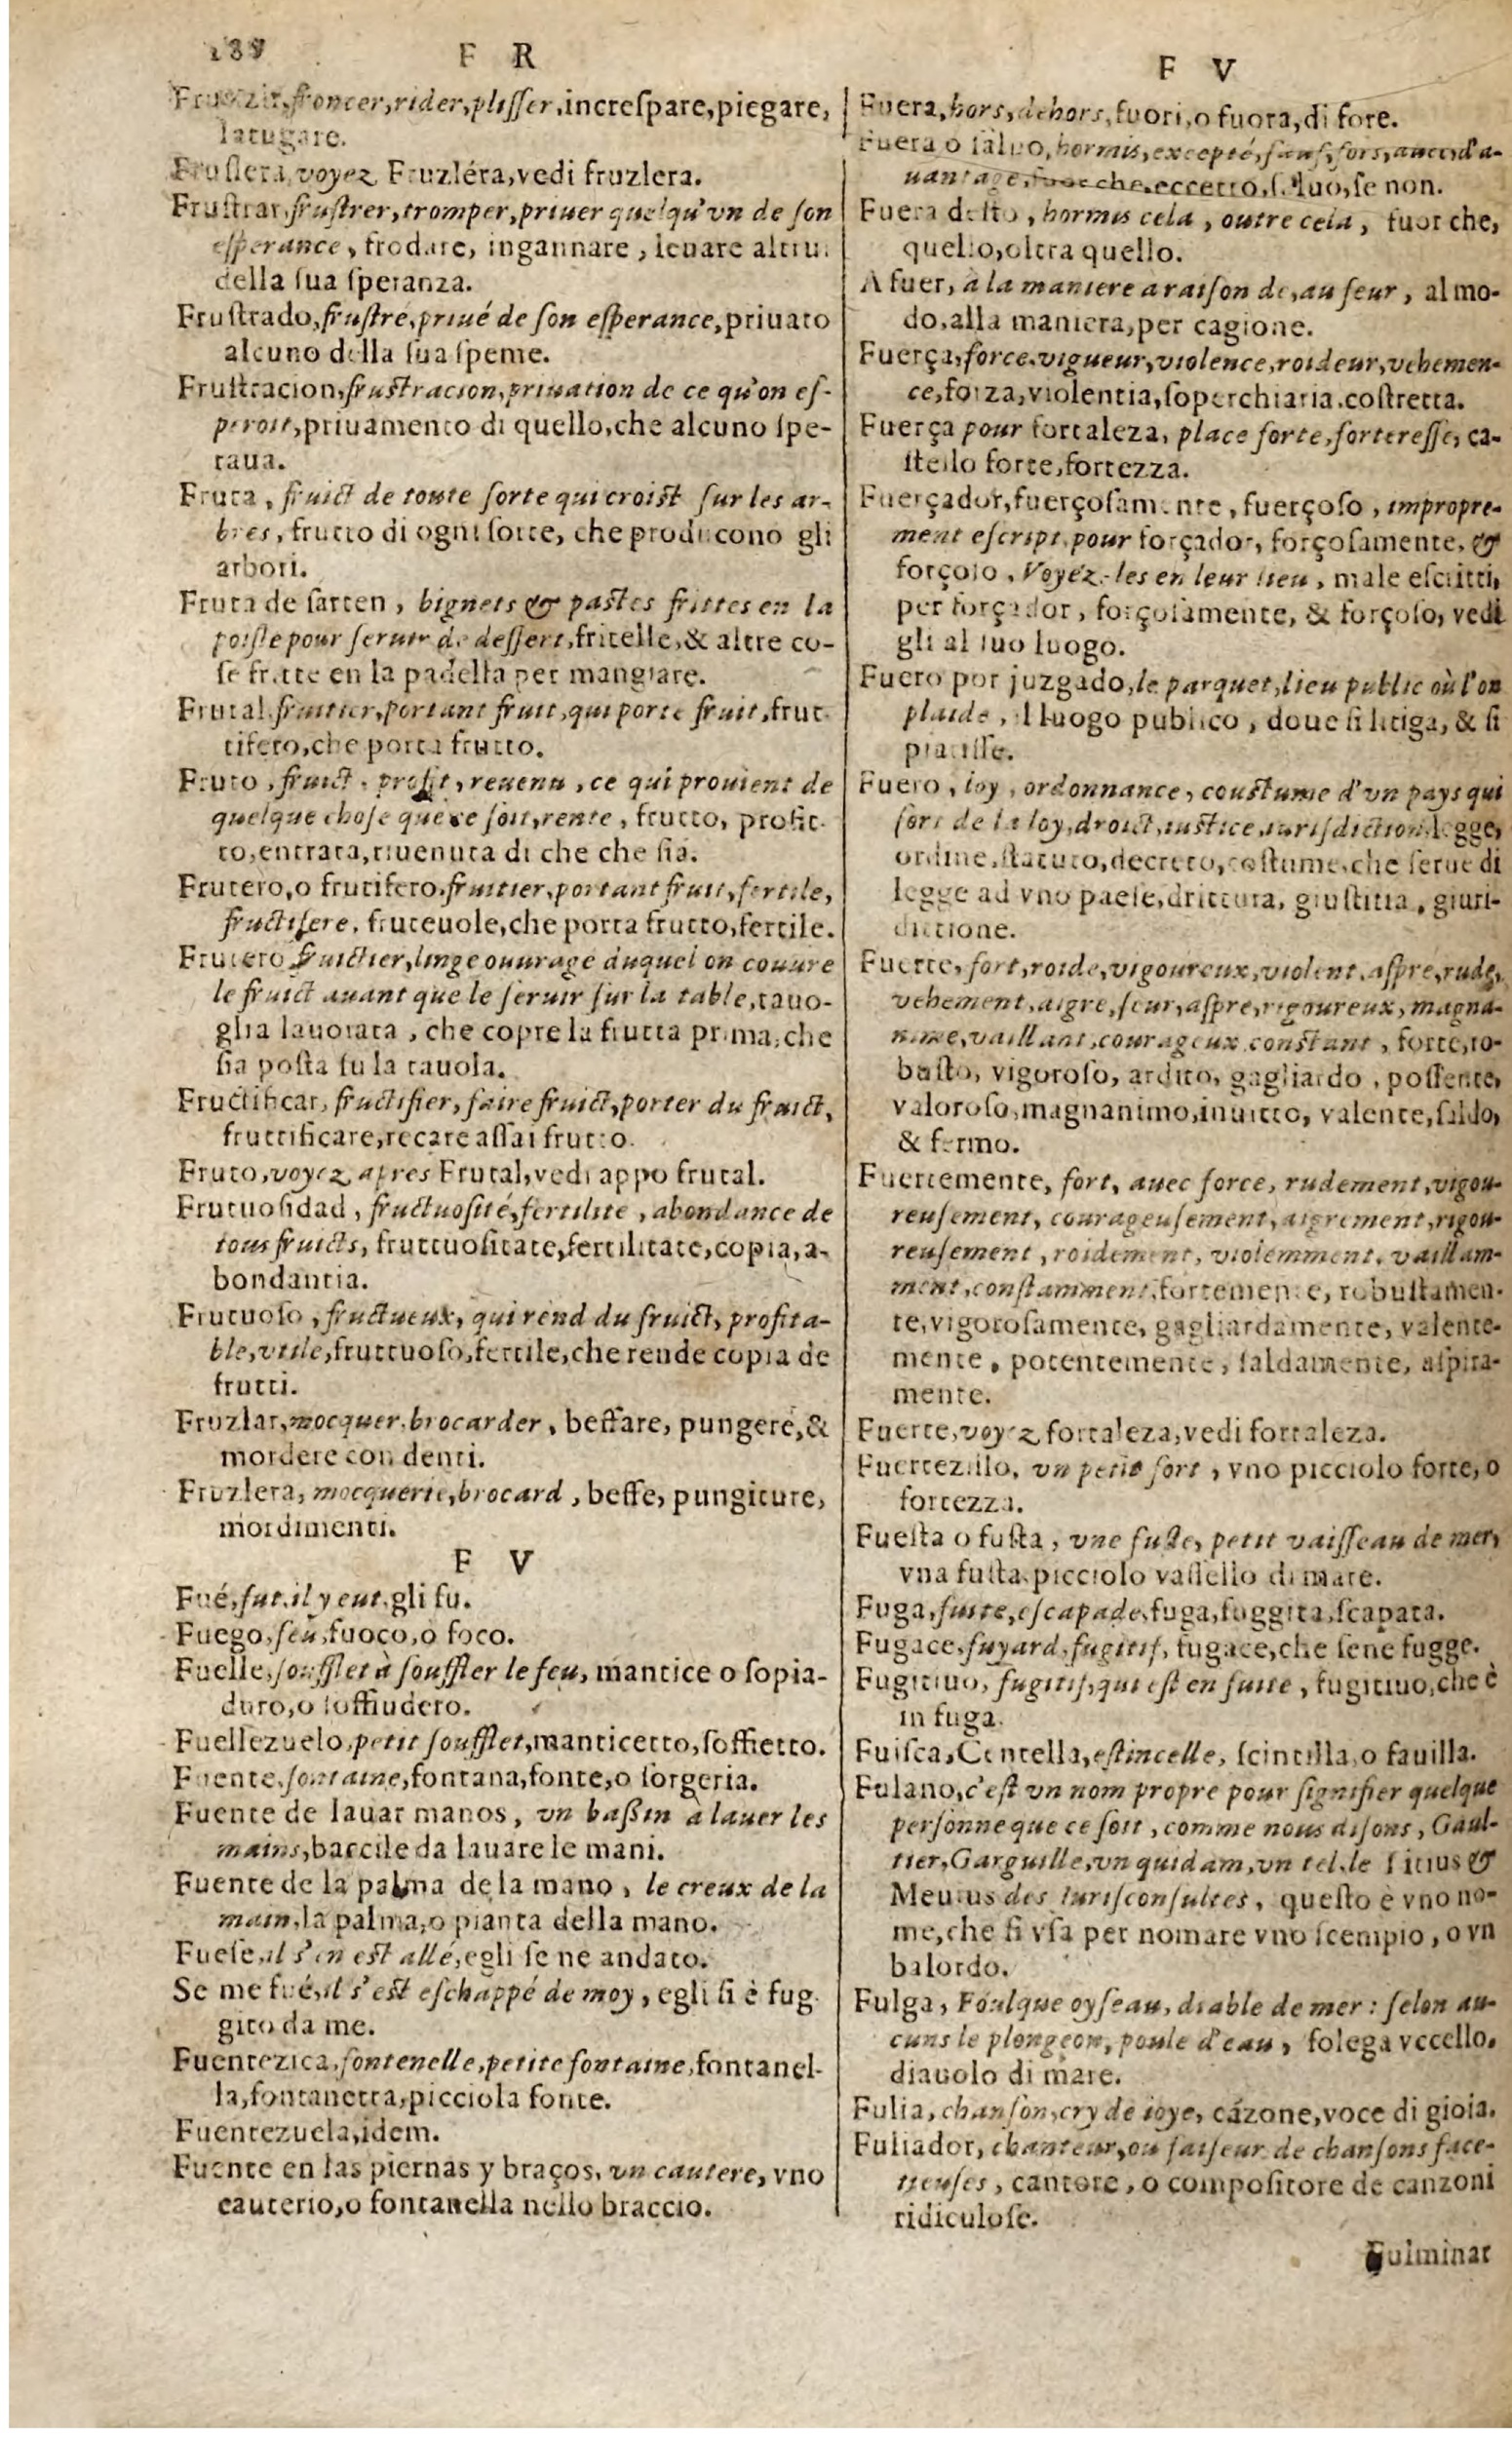 F R
Fruzzir, froncer, rider, plisser, increſpare, piegare,
latugare.
Fruſlera, voyez Fruzléra, vedi fruzlera.
Fruſtrar, fruſtrer, tromper, priuer quelqu'vn de ſon
eſperance, frodare, ingannare, leuare altrui
della ſua ſperanza.
Fruſtrado, fruſtré, priué de ſon eſperance, priuato
alcuno della ſua ſpeme.
Fruſtracion, fruſtracion, priuation de ce qu'on eſ-
peroit, priuamento di quello, che alcuno ſpe-
raua.
Fruta, fruict de toute ſorte qui croiſt ſur les ar-
bres, frutto di ogni ſorte, che producono gli
arbori.
Fruta de ſarten, bignets & paſtes frittes en la
poiſle pour ſeruir de deſſert, fritelle, & altre co-
ſe fritte en la padella per mangiare.
Frutal, fruitier, portant fruit, qui porte fruit, frut-
tifero, che porta frutto.
Fruto, fruict, profit, reuenu, ce qui prouient de
quelque choſe que ce ſoit, rente, frutto, profit-
to, entrata, riuenuta di che che ſia.
Frutero, o frutifero, fruitier, portant fruit, fertile,
fructifere, fruteuole, che porta frutto, fertile.
Frutero fruictier, linge ouurage duquel on couure
le fruict auant que le ſeruir ſur la table, tauo-
glia lauorata, che copre la frutta prima, che
ſia poſta ſu la tauola.
Fructificar, fructifier, faire fruict, porter du fruict,
fruttificare, recare aſſai frutto.
Fruto, voyez apres Frutal, vedi appo frutal.
Frutuoſidad, fructuoſité, fertilité, abondance de
tous fruicts, fruttuoſitate, fertilitate, copia, a-
bondantia.
Frutuoſo, fructueux, qui rend du fruict, profita-
ble, vtile, fruttuoſo, fertile, che rende copia de
frutti.
Fruzlar, mocquer, brocarder, beffare, pungere, &
mordere con denti.
Fruzlera, mocquerie, brocard, beffe, pungiture,
mordimenti.
F V
Fué, fut, il y eut, gli fu.
Fuego, feu, fuoco, o foco.
Fuelle, ſoufflet à ſouffler le feu, mantice o ſopia-
duro, o ſoffiudero.
Fuellezuelo, petit ſoufflet, manticetto, ſoffietto.
Fuente, fontaine, fontana, fonte, o ſorgeria.
Fuente de lauar manos, vn baßin à lauer les
mains, baccile da lauare le mani.
Fuente de la palma de la mano, le creux de la
main, la palma, o pianta della mano.
Fueſe, il s'en eſt allé, egli ſe ne andato.
Se me fué, il s'eſt eſchappé de moy, egli ſi è fug-
gito da me.
Fuentezica, fontenelle, petite fontaine, fontanel-
la, fontanetta, picciola fonte.
Fuentezuela, idem.
Fuente en las piernas y braços, vn cautere, vno
cauterio, o fontanella nello braccio.
F V
Fuera, hors, dehors, fuori, o fuora, di fore.
Fuera o ſaluo, hormis, excepté, ſauf, fors, auec, d'a-
uantage, fuor che, eccetto, ſaluo, ſe non.
Fuera deſto, hormis cela, outre cela, fuor che,
quello, oltra quello.
A fuer, à la maniere a raiſon de, au feur, al mo-
do, alla maniera, per cagione.
Fuerça, force, vigueur, violence, roideur, vehemen-
ce, forza, violentia, ſoperchiaria, coſtretta.
Fuerça pour fortaleza, place forte, fortereſſe, ca-
ſtello forte, fortezza.
Fuerçador, fuerçoſamente, fuerçoſo, impropre-
ment eſcript, pour forçador, forçoſamente, &
forçoſo, Voyez-les en leur lieu, male eſcritti,
per forçador, forçoſamente, & forçoſo, vedi
gli al ſuo luogo.
Fuero por juzgado, le parquet, lieu public où l'on
plaide, il luogo publico, doue ſi litiga, & ſi
piatiſſe.
Fuero, loy, ordonnance, couſtume d'vn pays qui
ſert de la loy, droict, iuſtice, iuriſdiction, legge,
ordine, ſtatuto, decreto, coſtume, che ſerue di
legge ad vno paeſe, drittura, giuſtitia, giuri-
dittione.
Fuerte, fort, roide, vigoureux, violent, aſpre, rude,
vehement, aigre, ſeur, aſpre, rigoureux, magna-
nime, vaillant, courageux, conſtant, forte, ro-
buſto, vigoroſo, ardito, gagliardo, poſſente,
valoroſo, magnanimo, inuitto, valente, ſaldo,
& fermo.
Fuertemente, fort, auec force, rudement, vigou-
reuſement, courageuſement, aigrement, rigou-
reuſement, roidement, violemment, vaillam-
ment, conſtamment, fortemente, robuſtamen-
te, vigoroſamente, gagliardamente, valente-
mente, potentemente, ſaldamente, aſpira-
mente.
Fuerte, voyez fortaleza, vedi fortaleza.
Fuertezillo, vn petit fort, vno picciolo forte, o
fortezza.
Fueſta o fuſta, vne fuſte, petit vaiſſeau de mer,
vna fuſta, picciolo vaſſello di mare.
Fuga, fuite, eſcapade, fuga, fuggita, ſcapata.
Fugace, fuyard, fugitif, fugace, che ſene fugge.
Fugitiuo, fugitif, qui eſt en fuite, fugitiuo, che è
in fuga.
Fuiſca, Centella, eſtincelle, ſcintilla, o fauilla.
Fulano, c'eſt vn nom propre pour ſignifier quelque
perſonne que ce ſoit, comme nous diſons, Gaul-
tier, Garguille, vn quidam, vn tel, le Titius &
Meuius des Iuriſconſultes, queſto è vno no-
me, che ſi vſa per nomare vno ſcempio, o vn
balordo.
Fulga, Foulque oyſeau, diable de mer : ſelon au-
cuns le plongeon, poule d'eau, folega vccello,
diauolo di mare.
Fulia, chanſon, cry de ioye, cãzone, voce di gioia.
Fuliador, chanteur, ou faiſeur de chanſons face-
tieuſes, cantore, o compoſitore de canzoni
ridiculoſe.
Fulminar